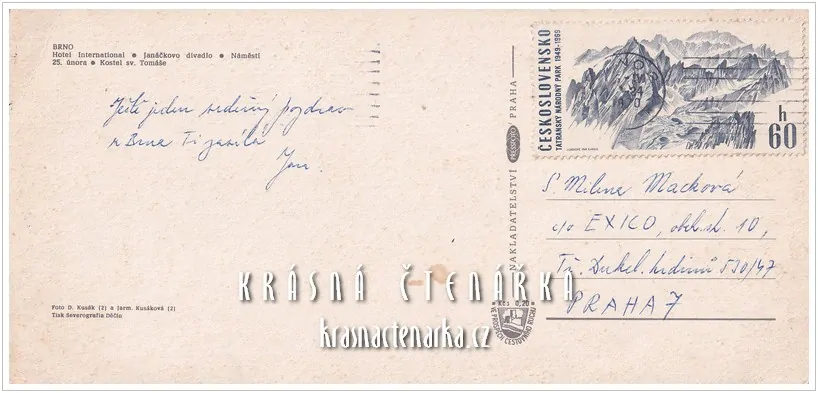 BRNO
Hotel International ● Janáčkovo divadlo ● Náměstí
25. února ● Kostel sv. Tomáše
Ještě jeden srdečný pozdrav
z Brna Ti zasílá
Jan.
Foto D. Kusák (2) a Jarm. Kusáková (2)
Tisk Severografia Děčín
NAKLADATELSTVÍ PRESSFOTO PRAHA
ČESKOSLOVENSKO
TATRANSKÝ NÁRODNÝ PARK 1949-1969
h
60
S. Milena Macková
c/o EXICO, obch. sk. 10,
Tř. Dukel. hrdinů 530/47
PRAHA 7
Kčs 0,20
VE PROSPĚCH CESTOVNÍHO RUCHU
KRÁSNÁ ČTENÁŘKA
krasnactenarka.cz